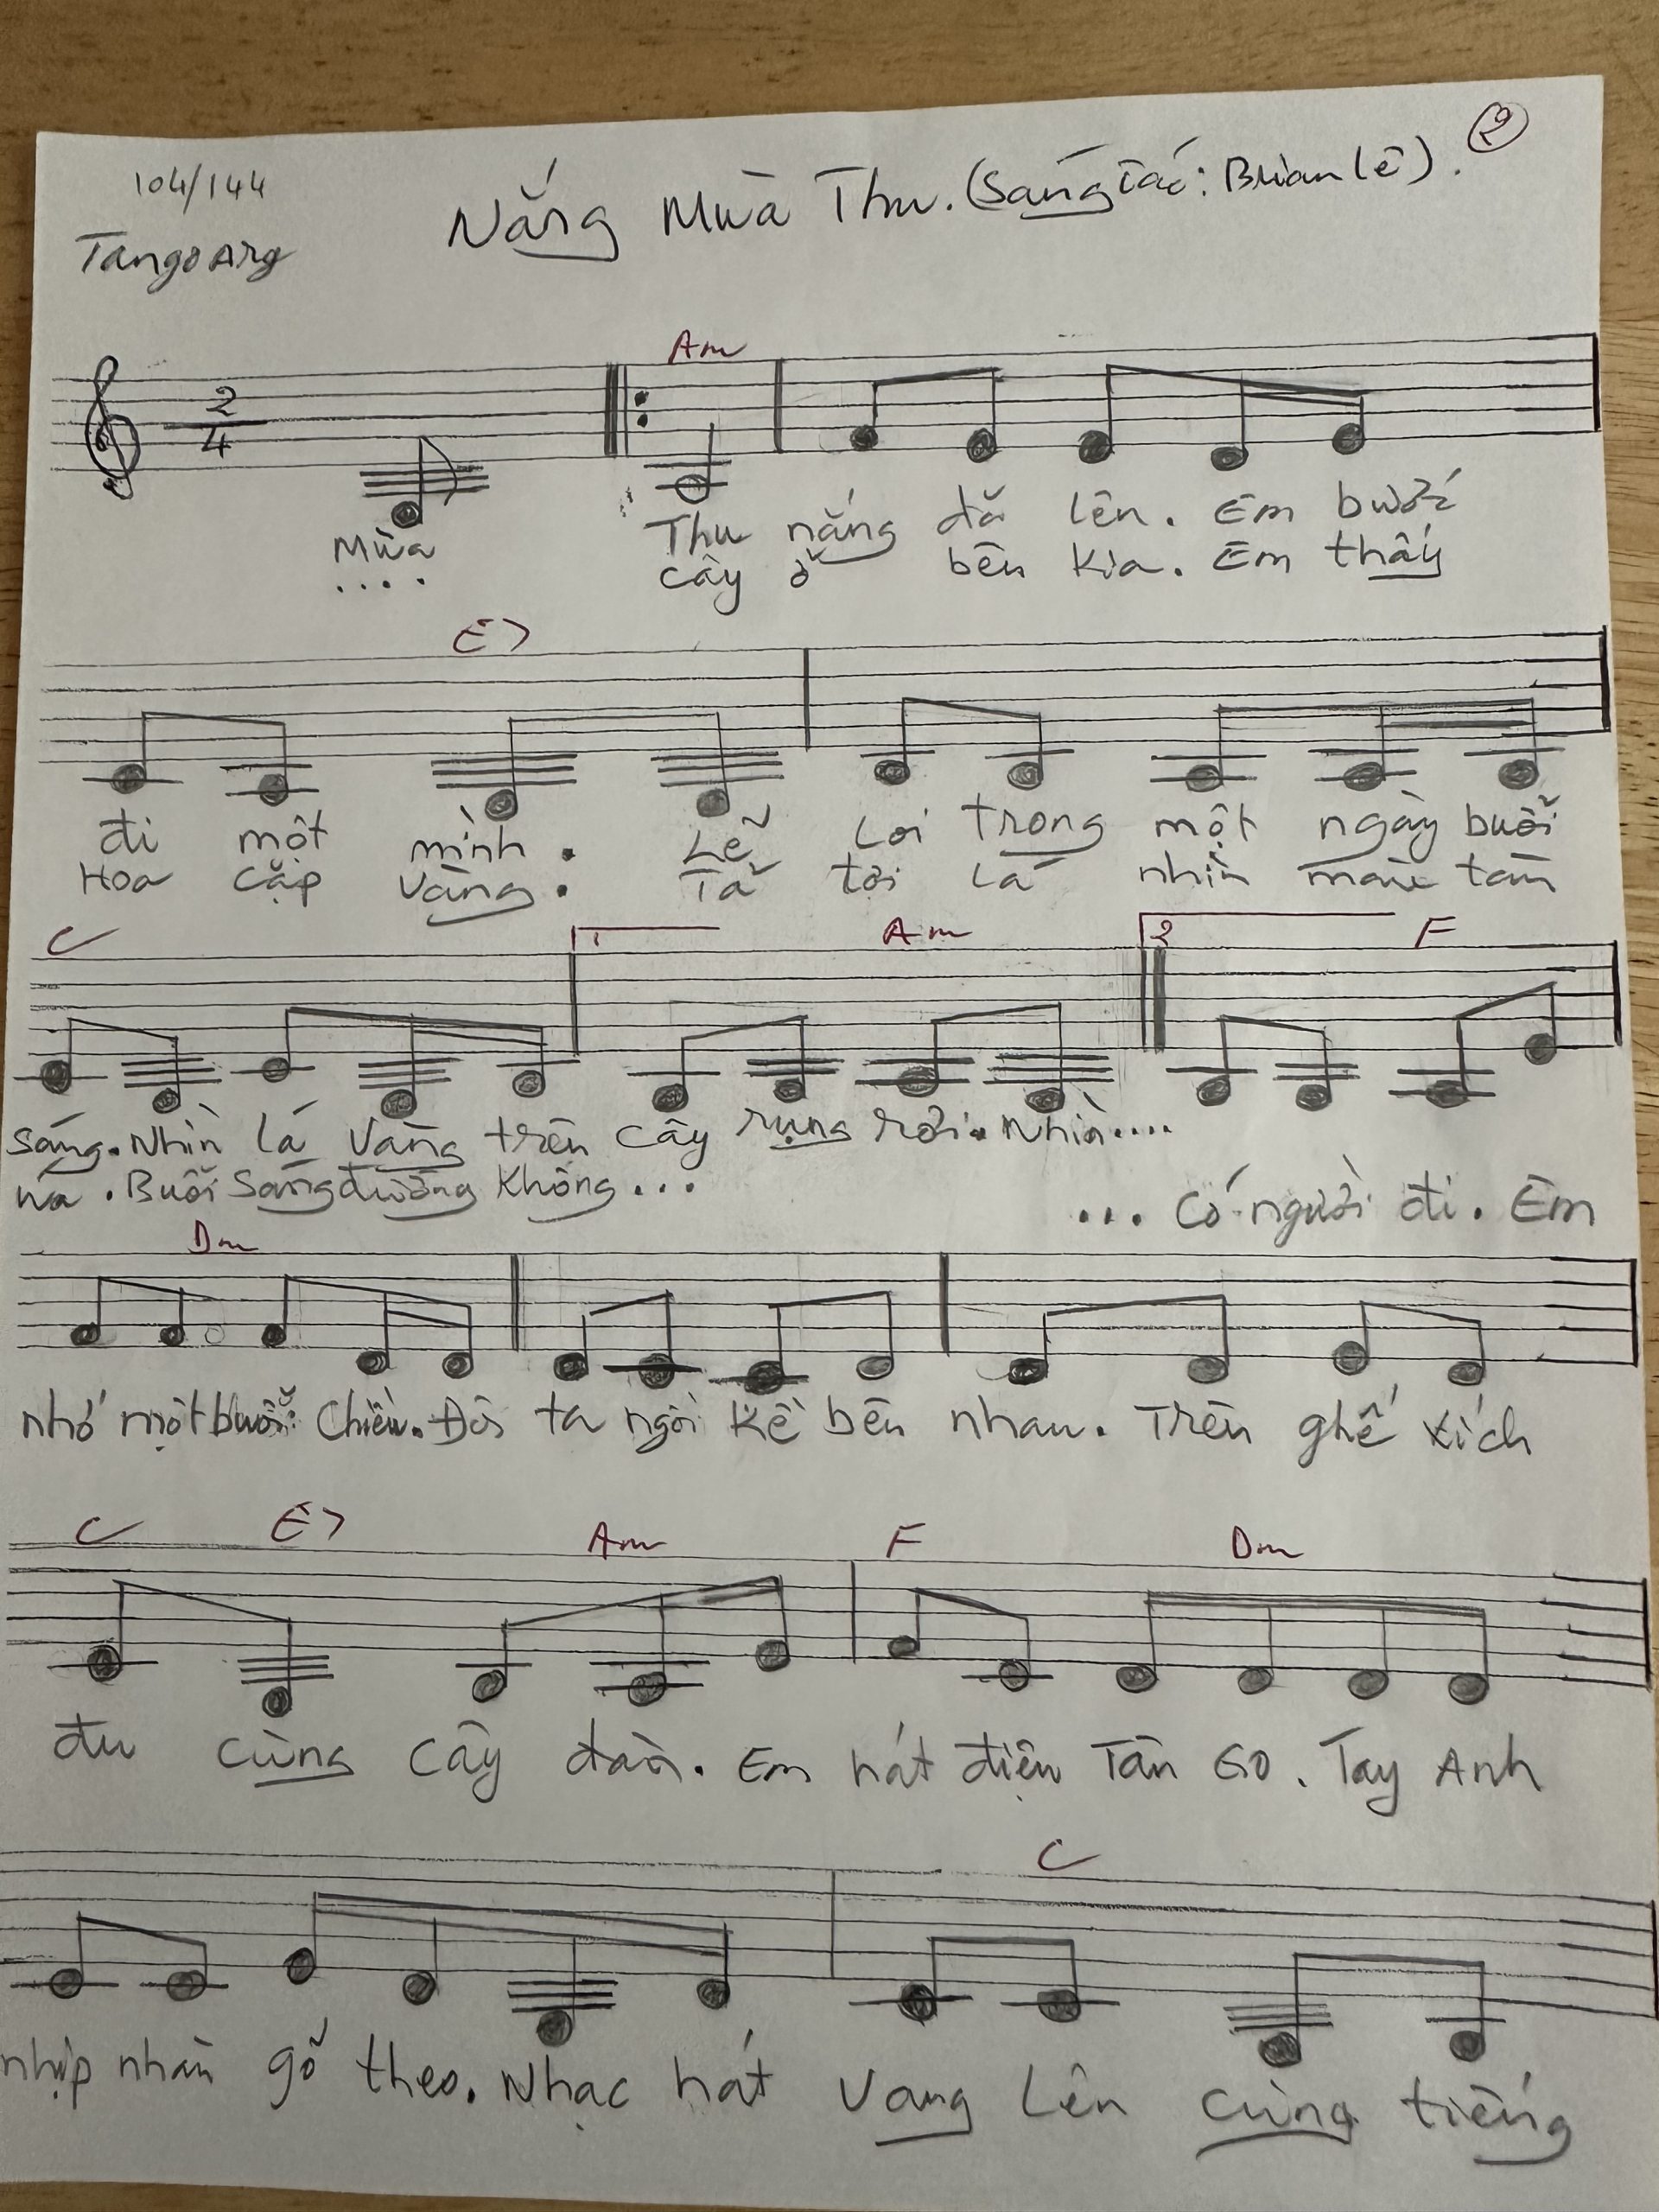 104/144
Nắng Mùa Thu. (Sáng Tác: Brian Lê). 2
Tango Arg
Am
2
4
Mùa Thu nắng đã lên. Em bước
.... cây ở bên kia. Em thấy
E7
đi một mình. Lẽ Loi trong một ngày buổi
Hoa cặp vàng. Tã tơi lá nhìn
C 1 Am 2 F
sáng. Nhìn lá vàng trên cây rụng rơi. Nhìn....
Buổi sáng đường không...
... Có người đi. Em
Dm
nhớ một buổi Chiều. Đôi ta ngồi kề bên nhau. Trên ghế xích
C E7 Am F Dm
đu cùng cây đàn. Em hát điệu Tân Go. Tay Anh
C
nhịp nhàn gỗ theo. Nhạc hát vang lên cùng tiếng